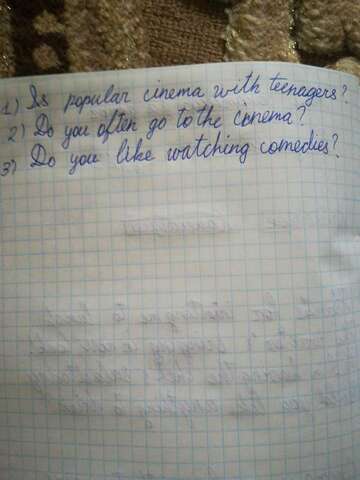 1) Is popular cinema with teenagers?
2) Do you often go to the cinema?
3) Do you like watching comedies?